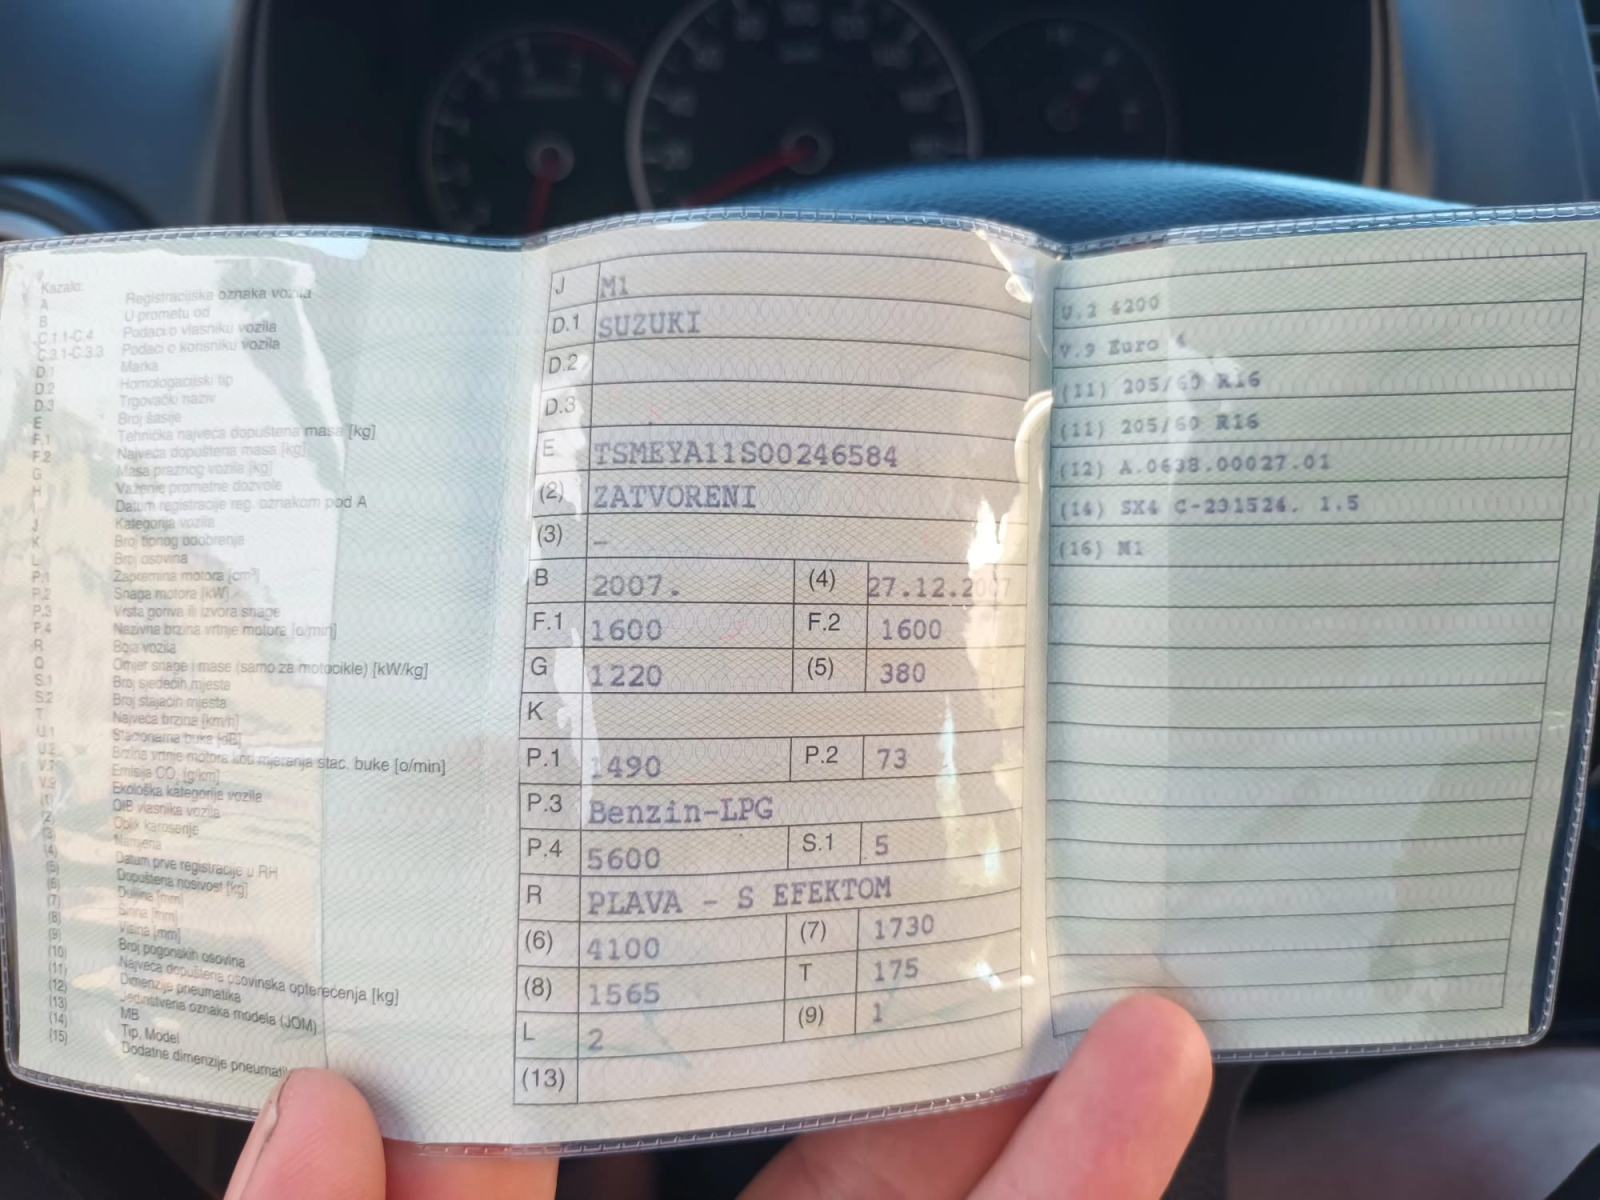 Kazalo:
A Registracijska oznaka vozila
B U prometu od
C.1.1-C.4 Podaci o vlasniku vozila
C.3.1-C.3.3 Podaci o korisniku vozila
D.1 Marka
D.2 Homologacijski tip
D.3 Trgovački naziv
E Broj šasije
F.1 Tehnička najveća dopuštena masa [kg]
F.2 Najveća dopuštena masa [kg]
G Masa praznog vozila [kg]
H Važenje prometne dozvole
I Datum registracije reg. oznakom pod A
J Kategorija vozila
K Broj tipnog odobrenja
L Broj osovina
P.1 Zapremina motora [cm³]
P.2 Snaga motora [kW]
P.3 Vrsta goriva ili izvora snage
P.4 Nazivna brzina vrtnje motora [o/min]
R Boja vozila
Q Omjer snage i mase (samo za motocikle) [kW/kg]
S.1 Broj sjedećih mjesta
S.2 Broj stajaćih mjesta
T Najveća brzina [km/h]
U.1 Stacionarna buke [dB]
U.2 Brzina vrtnje motora kod mjerenja stac. buke [o/min]
V.7 Emisija CO₂ [g/km]
V.9 Ekološka kategorija vozila
(1) OIB vlasnika vozila
(2) Oblik karoserije
(3) Namjena
(4) Datum prve registracije u RH
(5) Dopuštena nosivost [kg]
(6) Duljina [mm]
(7) Širina [mm]
(8) Visina [mm]
(9) Broj pogonskih osovina
(10) Najveća dopuštena osovinska opterećenja [kg]
(11) Dimenzije pneumatika
(12) Jedinstvena oznaka modela (JOM)
(13) MB
(14) Tip, Model
(15) Dodatne dimenzije
J M1
D.1 SUZUKI
D.2
D.3
E TSMEYA11S00246584
(2) ZATVORENI
(3) –
B 2007. (4) 27.12.2007
F.1 1600 F.2 1600
G 1220 (5) 380
K
P.1 1490 P.2 73
P.3 Benzin-LPG
P.4 5600 S.1 5
R PLAVA - S EFEKTOM
(6) 4100 (7) 1730
(8) 1565 T 175
L 2 (9) 1
(13)
U.2 4200
V.9 Euro 4
(11) 205/60 R16
(11) 205/60 R16
(12) A.0638.00027.01
(14) SX4 C-231524. 1.5
(16) M1